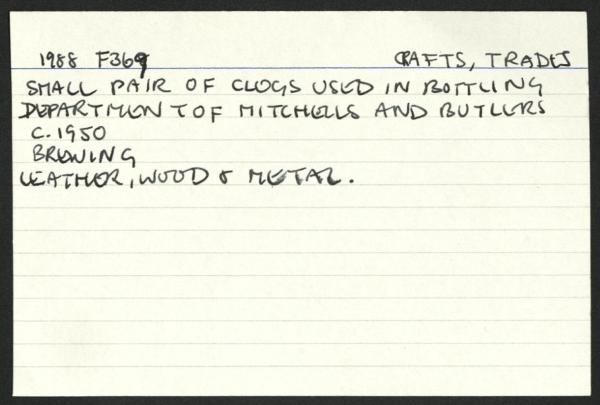 1988 F369 CRAFTS, TRADES
SMALL PAIR OF CLOGS USED IN BOTTLING
DEPARTMENT OF MITCHELLS AND BUTLERS
C.1950
BREWING
LEATHER, WOOD & METAL.